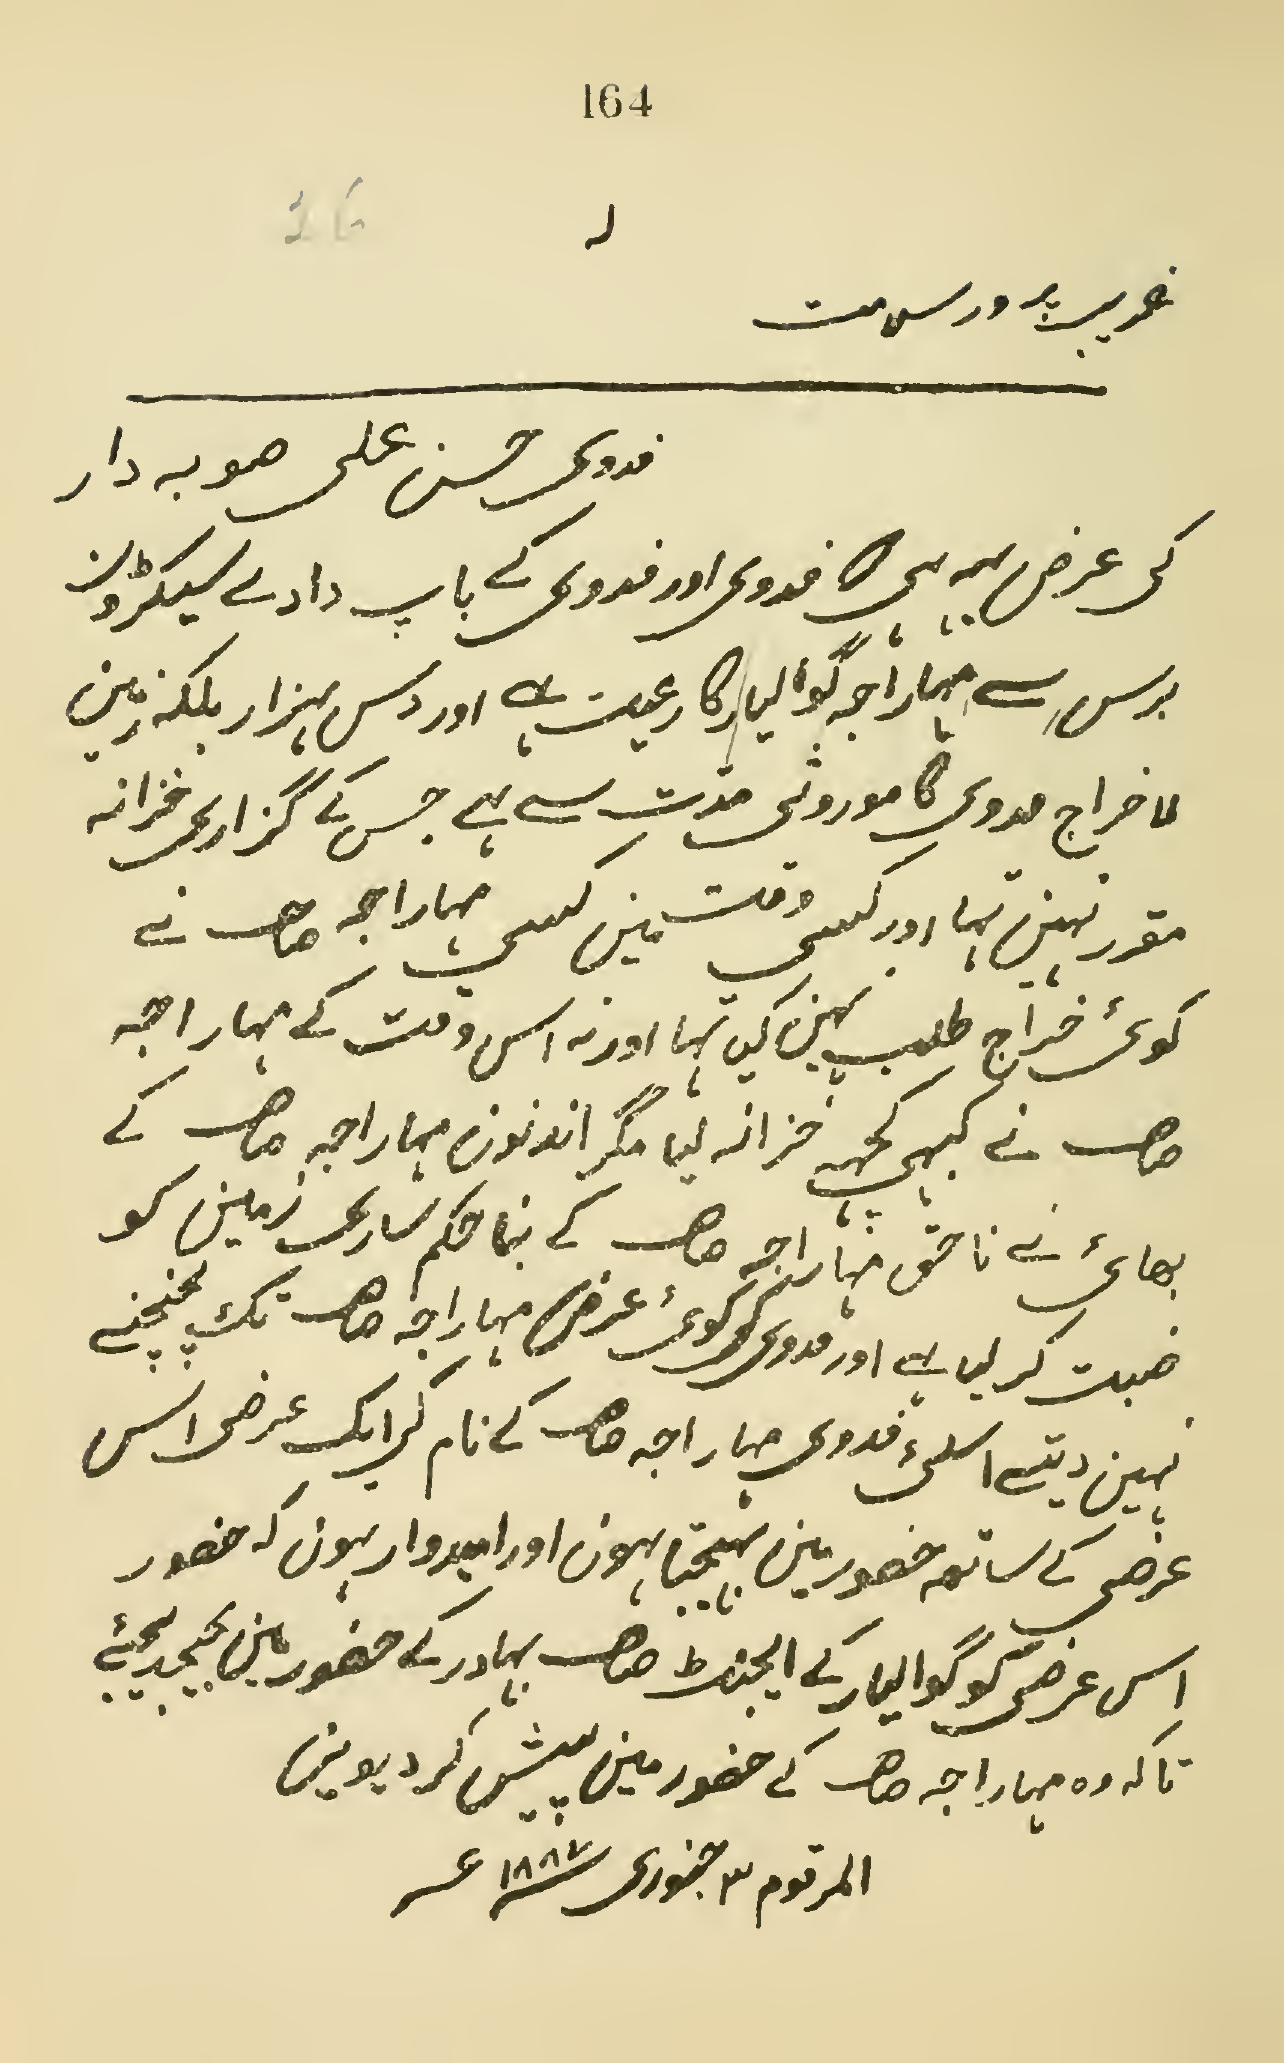 164
لہ
غریب پرور سلامت
فدوی حسن علی صوبہ دار
کی عرض یہہ ہی کا فدوی اور فدوی کے باپ دادے سیکڑون
برس سے مہاراجہ گوالیار کا رعیت ہے اور دس ہزار بلگہ زمین
لا خراج فدوی کا موروثی مدّت سے ہے جس کے گزاری خزانہ
مقرر نہین تہا اور کسی وقت مین کسی مہاراجہ صاحب نے
کوئی خراج طلب نہین کیا تہا اور نہ اس وقت کے مہاراجہ
صاحب نے کبہی کچہہ خزانہ لیا مگر اندنون مہاراجہ صاحب کے
بھائی نے ناحق مہاراجہ صاحب کے بنا حکم ساری زمین کو
ضبت کر لیا ہے اور فدوی کو کوئی عرض مہاراجہ صاحب تک پہنچنے
نہین دیتے اسلئ فدوی مہاراجہ صاحب کے نام کی ایک عرضی اس
عرضی کے ساتھہ حضور مین بہیجتا ہون اور امیدوار ہون کہ حضور
اس عرضی کو گوالیار کے ایجنٹ صاحب بہادر کے حضور مین بہیجدیجئے
تاکہ وہ مہاراجہ صاحب کے حضور مین پیش کر دیوین
المرقوم ٣ جنوری ١٨٨٧ ع